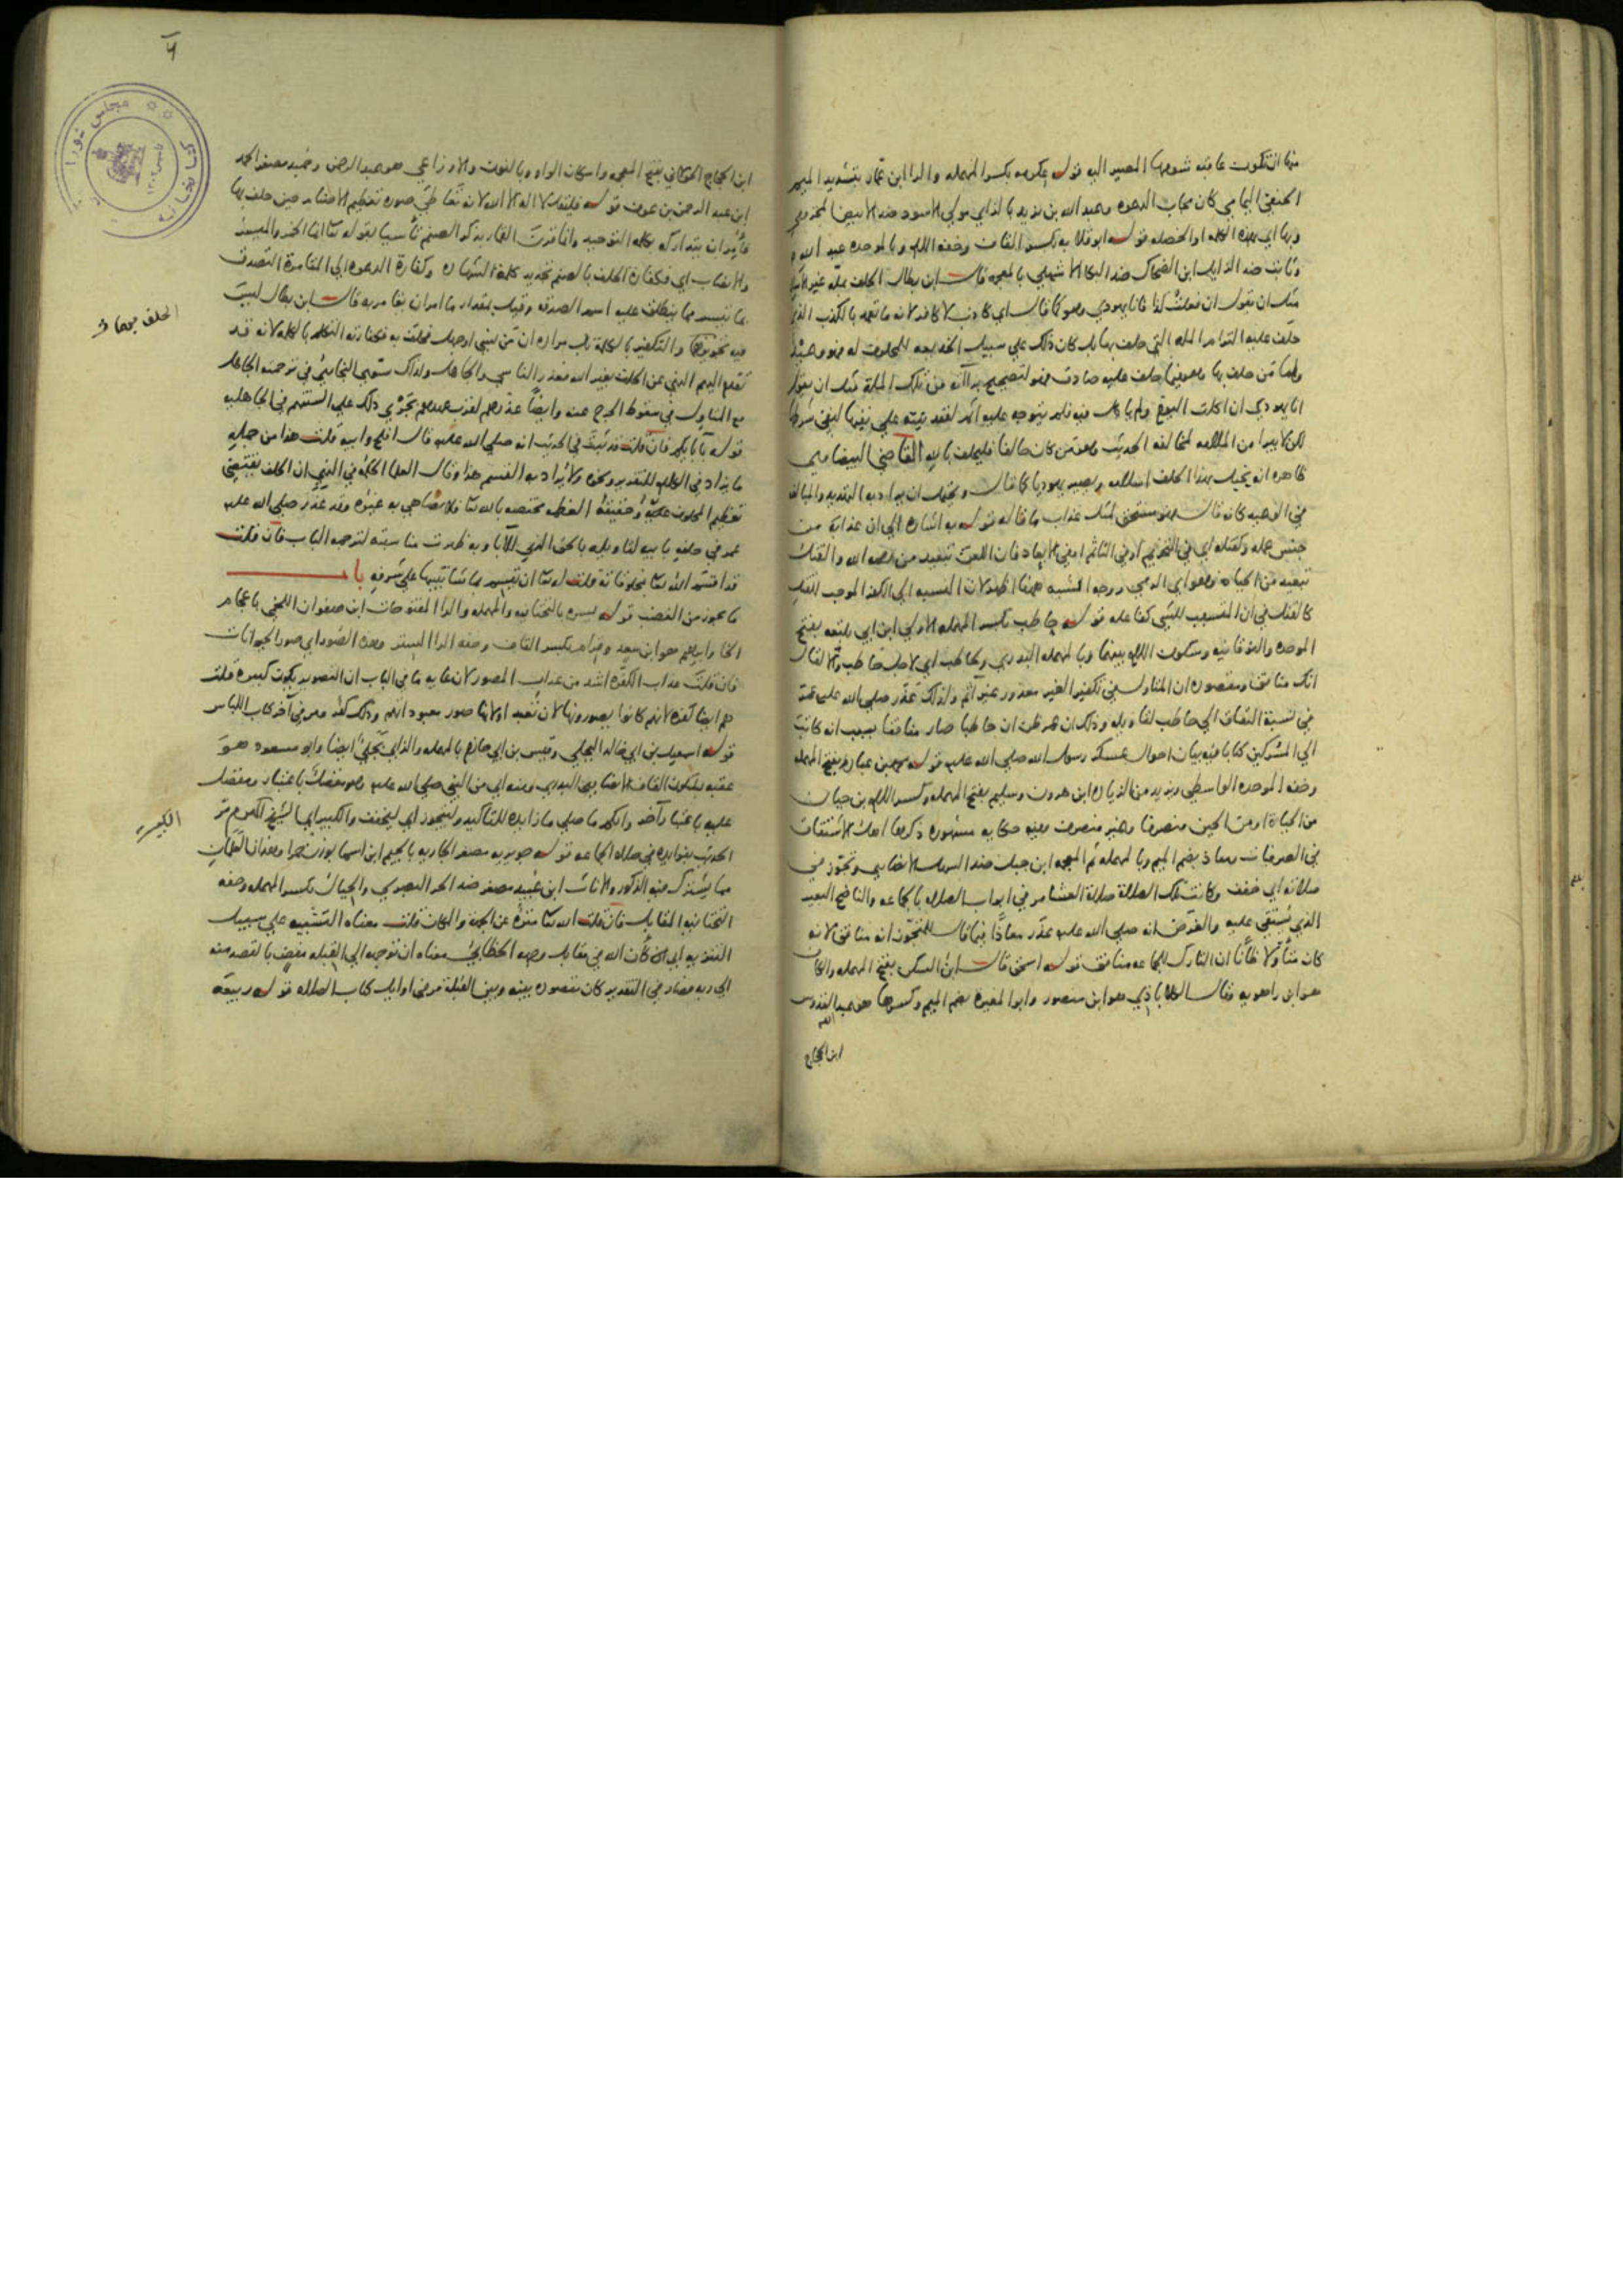 منها ان تكون عامة شومها المصير اليه قوله عكرمه بكسر المهمله والرا ابن عمار بتشديد الميم
الحنفي اليمامي كان مجاب الدعوه وعبد الله بن يزيد بالزاي مولي الاسود ضد الابيض المخزومي
وبها اي بهذه الكلمه او الخصله قوله ابو قلابه بكسر القاف وخفه اللام وبالموحده عبد الله
وثابت ضد الزايل ابن الضحاك ضد البكا الاشهلي بالمعجمه قال ابن بطال الحلف بملة غير الاسلام
مثل ان يقول ان فعلت كذا فانا يهودي وهو كما قال اي كاذب لا كافر لانه ما تعمد بالكذب الذي
حلف عليه التزام المله التي حلف بها بل كان ذلك علي سبيل الخديعه للمحلوف له فهو وعيد
واما من حلف بها وهو فيما حلف عليه صادق فهو لتصحيح براءته من تلك الملة مثل ان يقول
انا يهودي ان اكلت اليوم ولم ياكل فيه فلم يتوجه عليه اثم لعقد نيته علي نفيها لنفي شرطها
لكن لا يبرا من الملامه لمخالفه الحديث وهو من كان حالفا فليحلف بالله القاضي البيضاوي
ظاهره انه يختل بهذا الحلف اسلامه ويصير يهوديا كما قال ويحتمل ان يراد به التهديد والمبالغه
في الوعيد كانه قال فهو مستحق لمثل عذاب ما قاله قوله به اشاره الي ان عذابه من
جنس عمله وكقتله اي في التحريم او في التاثم او في الابعاد فان اللعن تبعيد من رحمه الله والقتل
تبعيد من الحياه وهو اي الرمي ووجه الشبه هنا اظهر لان النسبه الي الكفر الموجب للقتل
كالقتل في ان المتسبب للشي كفاعله قوله حاطب بكسر المهمله الاولي ابن ابي بلتعه بفتح
الموحده والفوقانيه وسكون اللام بينهما وبالمهمله البدري ولحاطب اي لاجل حاطب والا لقال
انك منافق ومقصوده ان المتاول في تكفير الغير معذور غير اثم ولذلك عذر صلي الله عليه عمر
في نسبة النفاق الي حاطب لتاويله وذلك ان عمر ظن ان حاطبا صار منافقا بسبب انه كاتب
الي المشركين كتابا فيه بيان احوال عسكر رسول الله صلي الله عليه قوله محمد بن عباده بفتح المهمله
وخفه الموحده الواسطي ويزيد من الزياده ابن هرون وسليم بفتح المهمله وكسر اللام بن حيان
من الحياة او من الحين منصرفا وغير منصرف وفيه حكايه مشهوره ذكرها اهل الاشتقاق
في الصرفيات ومعاذ بضم الميم وبالمهمله ثم المعجمه ابن جبل ضد السهل الانصاري وتجوز في
صلاته اي خفف وكانت تلك الصلاة صلاة العشا مر في ابواب الصلاه بالجماعه والناضح البعير
الذي يستقي عليه والغرض انه صلي الله عليه عذر معاذا فيما قال للمتجوز انه منافق لانه
كان متاولا ظانا ان التارك للجماعه منافق قوله اسحق قال ابن السكن بفتح المهمله والكاف
هو ابن راهويه وقال الكلاباذي هو ابن منصور وابو المغيره بضم الميم وكسرها هو عبد القدوس
ابن الحجاج
ابن الحجاج الخولاني بفتح المعجمه واسكان الواو وبالنون والاوزاعي هو عبد الرحمن وحميد مصغر الحمد
ابن عبد الرحمن بن عوف قوله فليقل لا اله الا الله لانه تعاطي صوره تعظيم الاصنام حين حلف بها
فامر ان يتداركه بكلمه التوحيد وانما قرن القمار بذكر الصنم تاسيا بقوله تعا انما الخمر والميسر
والانصاب اي فكفارة الحلف بالصنم تجديد كلمة الشهاده وكفارة الدعوه الي المقامرة التصدق
بما تيسر مما ينطلق عليه اسم الصدقه وقيل بمقدار ما امر ان يقامر به قال ابن بطال ليس
تقدم اليهم النهي عن الحلف بغير الله فعذر الناسي والجاهل ولذلك سوي البخاري في ترجمته الجاهل
مع المتاول في سقوط الحرج عنه وايضا عذرهم لقرب عهدهم بجري ذلك علي السنتهم في الجاهليه
قوله بابايكم فان قلت قد ثبت في الحديث انه صلي الله عليه قال افلح وابيه قلت هذا من جمله
ما يزاد في الكلام للتقرير ونحوه ولا يراد به القسم هذا وقال العلما الحكمه في النهي ان الحلف يقتضي
تعظيم المحلوف عليه وحقيقة العظمه مختصه بالله تعا فلا يضاهي به غيره وقد عذر صلي الله عليه
عمر في حلفه بابيه لتاويله بالحق الذي للابا وبه ظهرت مناسبته لترجمه الباب فان قلت
قد اقسم الله تعا بمخلوقاته قلت له تعا ان يقسم بما شا تنبيها علي شرفه باب
ما يجوز من الغضب قوله يسره بالتحتانيه والمهمله والرا المفتوحات ابن صفوان اللخمي باعجام
الخا وابراهيم هو ابن سعد وقرام بكسر القاف وخفه الرا الستر وهذه الصور اي صور الحيوانات
فان قلت عذاب الكفره اشد من عذاب المصور لان غايه ما في الباب ان التصوير يكون كبيره قلت
هم ايضا كفره لانهم كانوا يصورونها لان تعبد او لانها صور معبوداتهم وذلك كفر ومر في آخر كتاب اللباس
قوله اسمعيل بن ابي خالد البجلي وقيس بن ابي حازم بالمهمله والزاي بجلي ايضا وابو مسعود هو
عقبه بسكون القاف الانصاري البدري ومنه اي من النبي صلي الله عليه وهو مفضل باعتبار ومفضل
عليه باعتبار آخر وايكم ما صلي ما زايده للتاكيد وليتجوز اي ليخفف والكبير اي الشيخ الهرم مر
الحديث بفوايده في صلاه الجماعه قوله جويريه مصغر الجاريه بالجيم ابن اسما بوزن حمرا وهذان العلمان
مما يشترك فيه الذكور والاناث ابن عبيد مصغر ضد الحر البصري والحيال بكسر المهمله وخفه
التحتانيه المقابل فان قلت الله تعا منزه عن الجهة والمكان قلت معناه التشبيه علي سبيل
التنزيه اي كان الله في مقابل وجهه الخطابي معناه ان توجهه الي القبله مفض بالقصد منه
الي ربه فصار في التقدير كان مقصوده بينه وبين القبلة مر في اوايل كتاب الصلاه قوله ربيعه